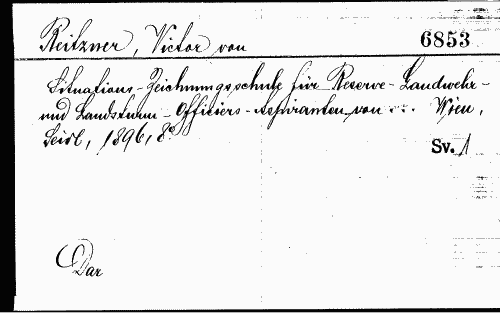 Reitzner, Victor von
6853
Situations-Zeichnungsschule für Reserve- Landwehr-
und Landsturm-Officiers-Aspiranten von ... Wien,
Seidl, 1896, 8°
Sv. 1
Dar